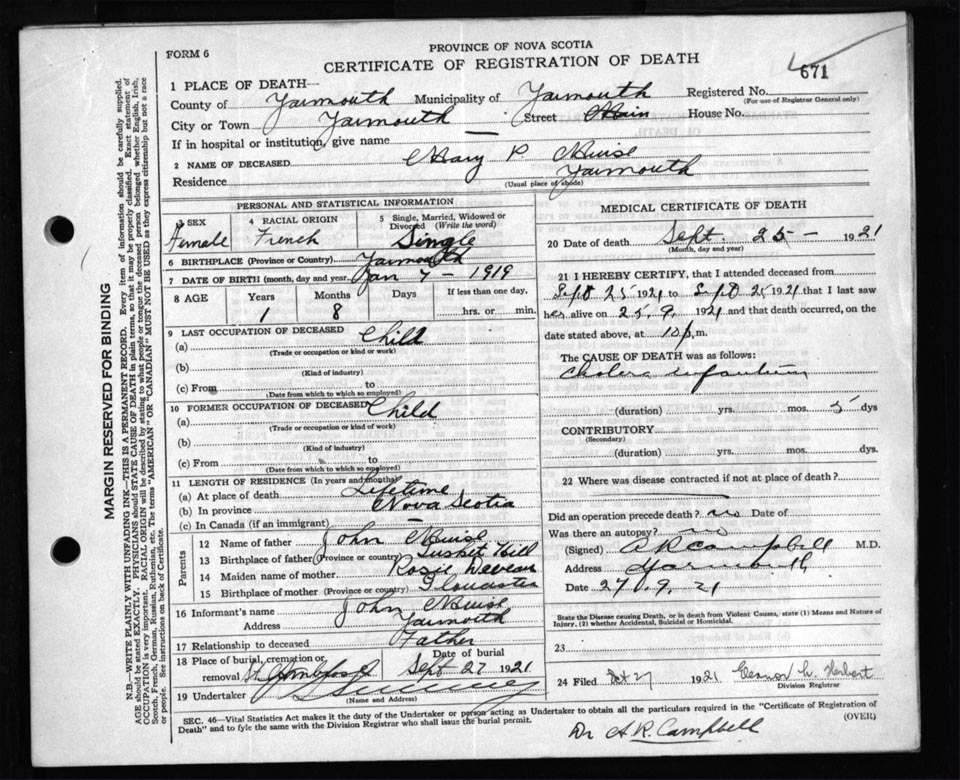 FORM 6
PROVINCE OF NOVA SCOTIA
CERTIFICATE OF REGISTRATION OF DEATH
671
1 PLACE OF DEATH—
County of Yarmouth Municipality of Yarmouth Registered No.
(For use of Registrar General only)
City or Town Yarmouth Street Main House No.
If in hospital or institution, give name —
2 NAME OF DECEASED Mary P. Muise
Residence Yarmouth
(Usual place of abode)
PERSONAL AND STATISTICAL INFORMATION
3 SEX
Female
4 RACIAL ORIGIN
French
5 Single, Married, Widowed or Divorced (Write the word)
Single
6 BIRTHPLACE (Province or Country) Yarmouth
7 DATE OF BIRTH (month, day and year) Jan 7 - 1919
8 AGE Years Months Days If less than one day,
1 8 hrs. or min.
9 LAST OCCUPATION OF DECEASED
(a) Child
(Trade or occupation or kind or work)
(b)
(Kind of industry)
(c) From to
(Date from which to which so employed)
10 FORMER OCCUPATION OF DECEASED
(a) Child
(Trade or occupation or kind of work)
(b)
(Kind of industry)
(c) From to
(Date from which to which so employed)
11 LENGTH OF RESIDENCE (In years and months)
(a) At place of death Lifetime
(b) In province Nova Scotia
(c) In Canada (if an immigrant) —
Parents
12 Name of father John Muise
13 Birthplace of father (Province or country) Tusket Hill
14 Maiden name of mother Rosie Deveau
15 Birthplace of mother (Province or country) Gloucester
16 Informant's name John Muise
Address Yarmouth
17 Relationship to deceased Father
18 Place of burial, cremation or removal St Ambrose
Date of burial
Sept 27 1921
19 Undertaker
(Name and Address)
MEDICAL CERTIFICATE OF DEATH
20 Date of death Sept. 25 - 1921
(Month, day and year)
21 I HEREBY CERTIFY, that I attended deceased from
Sept 25 1921 to Sept 25 1921 that I last saw
her alive on 25. 9. 1921 and that death occurred, on the
date stated above, at 10 p.m.
The CAUSE OF DEATH was as follows:
Cholera infantum
(duration) yrs. mos. 5 dys
CONTRIBUTORY
(Secondary)
(duration) yrs. mos. dys.
22 Where was disease contracted if not at place of death?
Did an operation precede death? no Date of
Was there an autopsy? no
(Signed) A R Campbell M.D.
Address Yarmouth
Date 27. 9. 21
State the Disease causing Death, or in death from Violent Causes, state (1) Means and Nature of
Injury, (2) whether Accidental, Suicidal or Homicidal.
23
24 Filed 27 1921 Eleanor L. Herbert
Division Registrar
SEC. 46—Vital Statistics Act makes it the duty of the Undertaker or person acting as Undertaker to obtain all the particulars required in the "Certificate of Registration of
Death" and to fyle the same with the Division Registrar who shall issue the burial permit.
(OVER)
Dr A. R. Campbell
MARGIN RESERVED FOR BINDING
N.B.—WRITE PLAINLY WITH UNFADING INK—THIS IS A PERMANENT RECORD. Every item of information should be carefully supplied.
AGE should be stated EXACTLY. PHYSICIANS should STATE CAUSE OF DEATH in plain terms, so that it may be properly classified. Exact statement of
OCCUPATION is very important. RACIAL ORIGIN will be described by stating to what people or tongue the deceased person belonged whether English, Irish,
Scotch, French, German, Russian, Ruthenian, etc. The terms "AMERICAN" or "CANADIAN" MUST NOT BE USED as they express citizenship but not a race
or people. See instructions on back of Certificate.